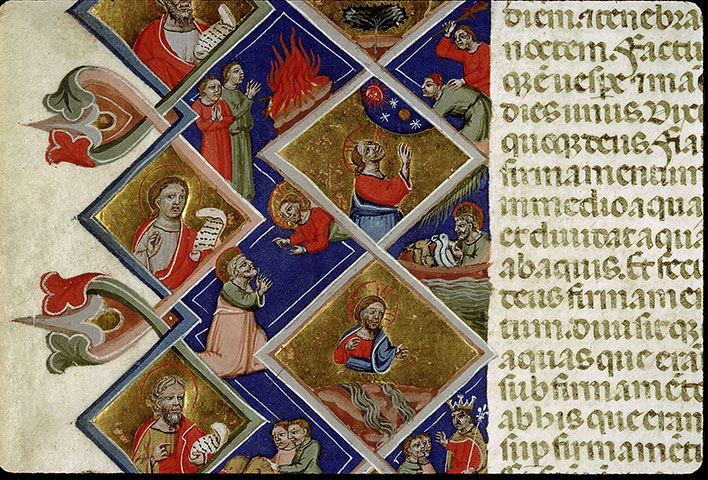 diem atenebra
noctem. Factu
qȝ ē uespe ⁊ ma
dies unus. Dixi
deus. Fia
firmamentum
inmedio aqua
et diuidat aqua
abaquis. Et feci
deus firmamen
tum. diuisitqȝ
aquas que eran
sub firmamēto
abhis que eran
sup firmamēt